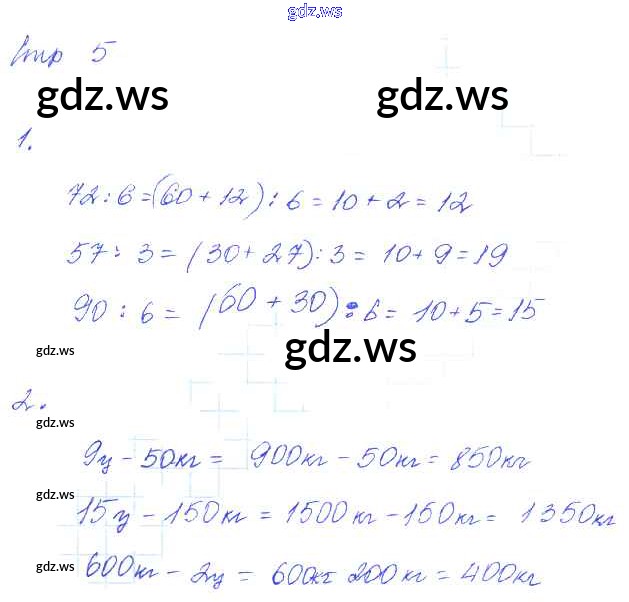 gdz.ws
Стр 5
gdz.ws gdz.ws
1.
72 : 6 = (60 + 12) : 6 = 10 + 2 = 12
57 : 3 = (30 + 27) : 3 = 10 + 9 = 19
90 : 6 = (60 + 30) : 6 = 10 + 5 = 15
gdz.ws gdz.ws
2.
gdz.ws
9ц - 50кг = 900кг - 50кг = 850кг
gdz.ws
15ц - 150кг = 1500кг - 150кг = 1350кг
gdz.ws
600кг - 2ц = 600кг 200кг = 400кг